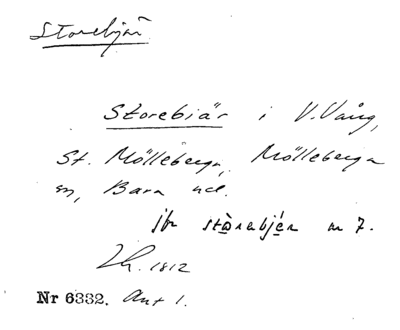 Storebjär
Storebiär i V. Vång,
St. Mölleberga, Mölleberga
sn, Bara hd.
jfr störebjér nr 7.
Lh. 1812
Nr 6332. Akt 1.